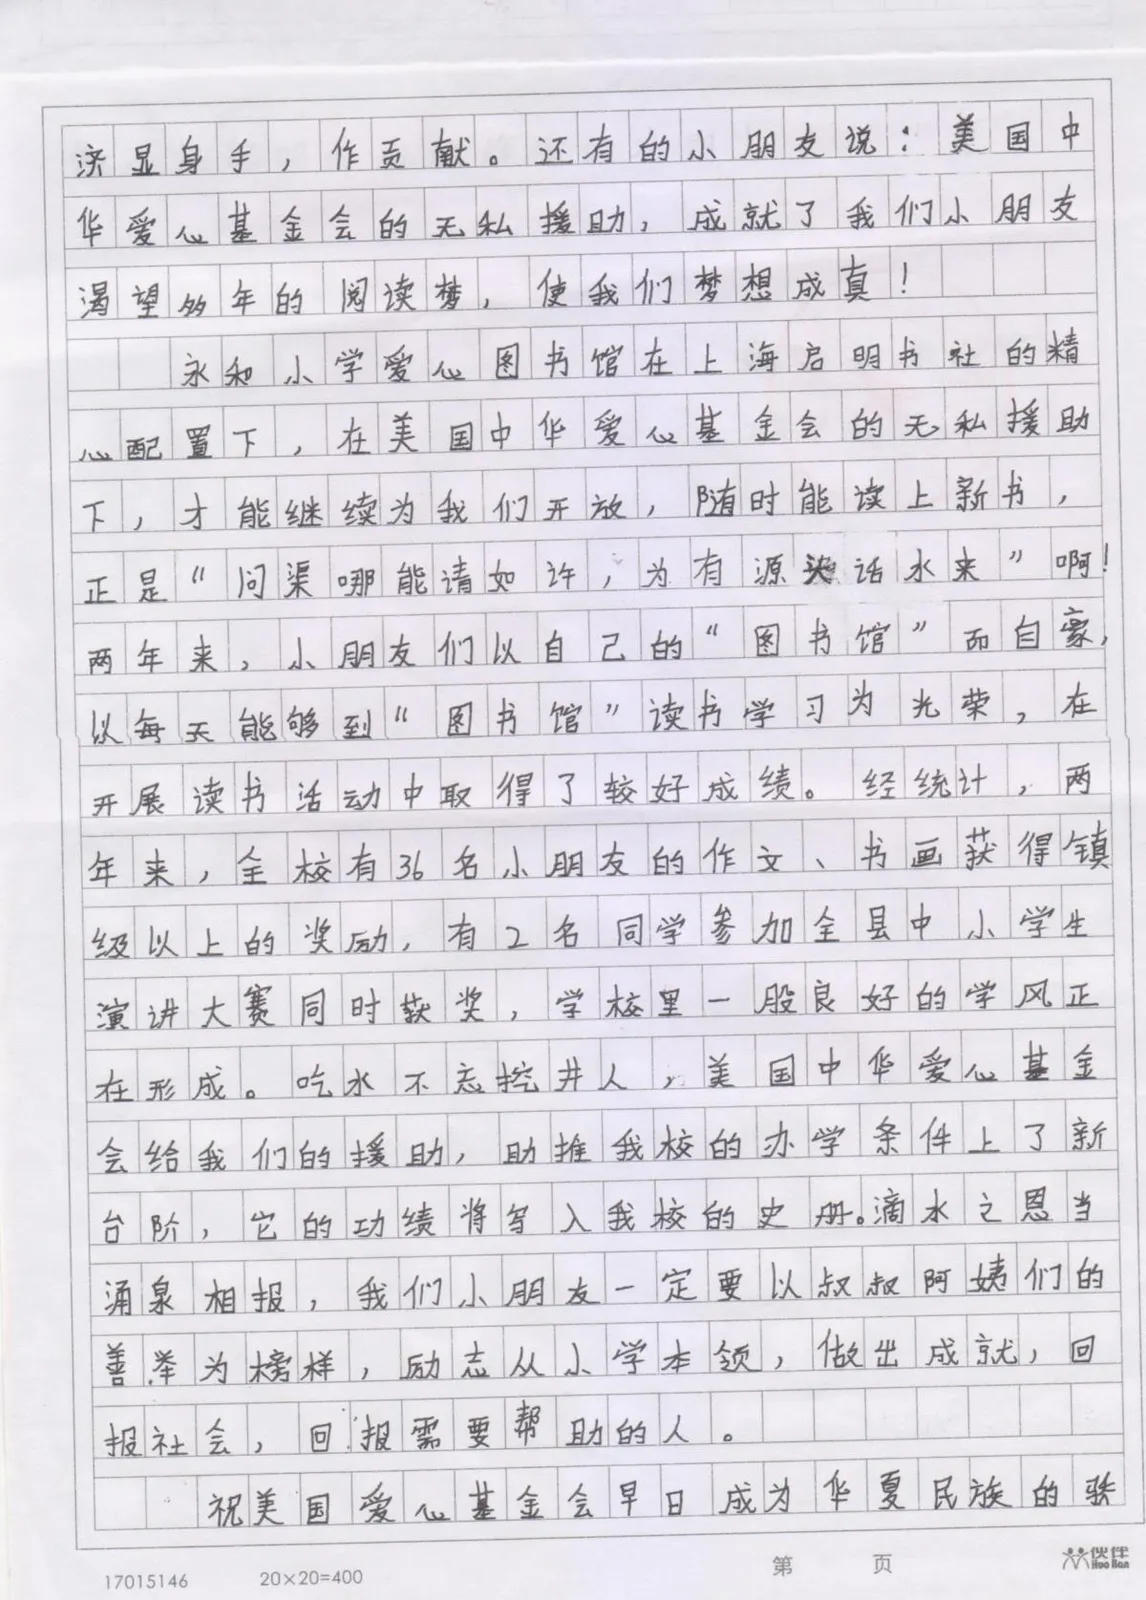 济显身手，作贡献。还有的小朋友说：美国中
华爱心基金会的无私援助，成就了我们小朋友
渴望多年的阅读梦，使我们梦想成真！
永和小学爱心图书馆在上海启明书社的精
心配置下，在美国中华爱心基金会的无私援助
下，才能继续为我们开放，随时能读上新书，
正是“问渠哪能请如许，为有源头活水来”啊！
两年来，小朋友们以自己的“图书馆”而自豪，
以每天能够到“图书馆”读书学习为光荣，在
开展读书活动中取得了较好成绩。经统计，两
年来，全校有36名小朋友的作文、书画获得镇
级以上的奖励，有2名同学参加全县中小学生
演讲大赛同时获奖，学校里一股良好的学风正
在形成。吃水不忘挖井人，美国中华爱心基金
会给我们的援助，助推我校的办学条件上了新
台阶，它的功绩将写入我校的史册。滴水之恩当
涌泉相报，我们小朋友一定要以叔叔阿姨们的
善举为榜样，励志从小学本领，做出成就，回
报社会，回报需要帮助的人。
祝美国爱心基金会早日成为华夏民族的骄
17015146 20×20=400 第 页 伙伴 Huo Ban